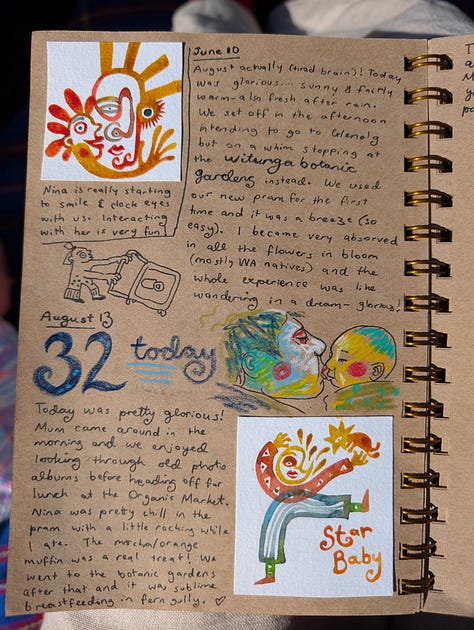 June 10
August actually (tired brain)! Today
was glorious.... sunny & fairly
warm - also fresh after rain.
We set off in the afternoon
intending to go to Glenelg
but on a whim stopping at
the Wittunga botanic
gardens instead. We used
our new pram for the first
time and it was a breeze (so
easy). I became very absorbed
in all the flowers in bloom
(mostly WA natives) and the
whole experience was like
wandering in a dream - glorious!
Nina is really starting
to smile & lock eyes
with us. Interacting
with her is very fun!
August 13
32 today
Today was pretty glorious!
Mum came around in the
morning and we enjoyed
looking through old photo
albums before heading off for
lunch at the Organic Market.
Nina was pretty chill in the
pram with a little rocking while
I ate. The mocha/orange
muffin was a real treat! We
went to the botanic gardens
after that and it was sublime
breastfeeding in fern gully. ♡
Star
Baby